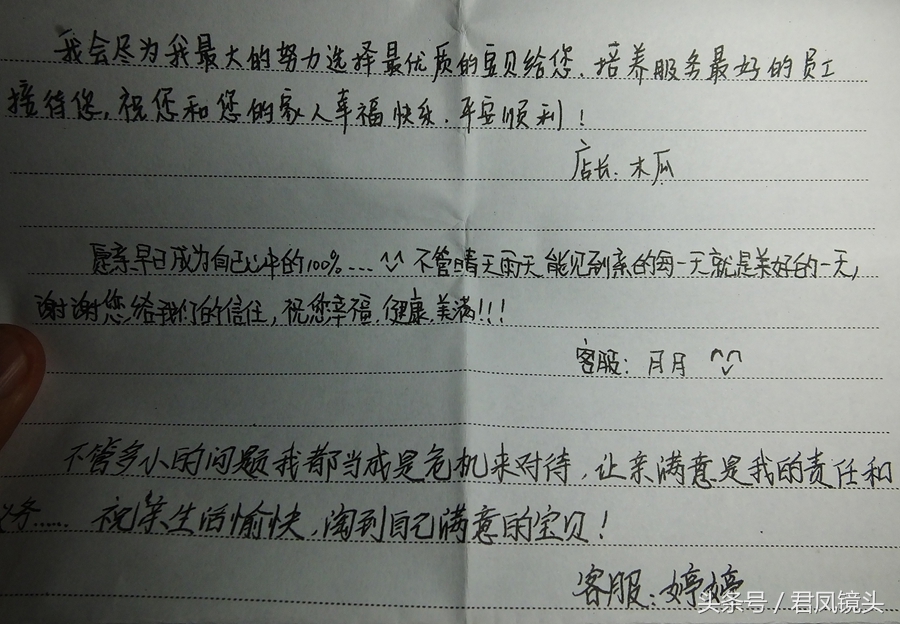 我会尽为我最大的努力选择最优质的宝贝给您、培养服务最好的员工
接待您,祝您和您的家人幸福快乐、平安顺利!
店长:木瓜
愿亲早日成为自己心中的100%....^_^ 不管晴天雨天能见到亲的每一天就是美好的一天,
谢谢您给我们的信任,祝您幸福.健康.美满!!!
客服:月月 ^_^
不管多小的问题我都当成是危机来对待,让亲满意是我的责任和
义务..... 祝亲生活愉快,淘到自己满意的宝贝!
客服:婷婷
头条号/君凤镜头